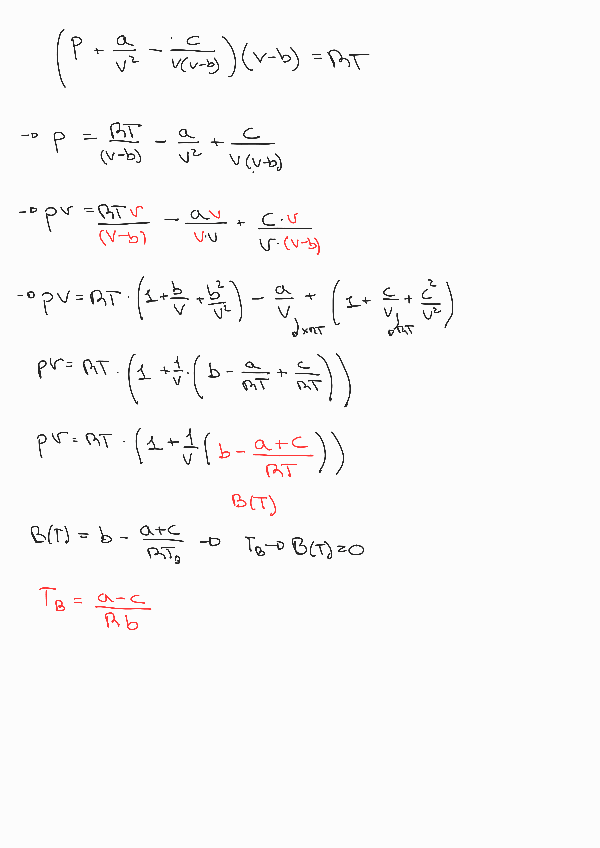 (P + a/v² − c/v(v−b))(v−b) = RT
→ P = RT/(v−b) − a/v² + c/v(v−b)
→ pv = RTv/(v−b) − av/v·v + c·v/v·(v−b)
→ pv = RT · (1 + b/v + b²/v²) − a/v + (1 + c/v + c²/v²)
pv = RT · (1 + 1/v · (b − a/RT + c/RT))
pv = RT · (1 + 1/v (b − a+c/RT))
B(T)
B(T) = b − a+c/RT_B → T_B → B(T) = 0
T_B = a−c/Rb